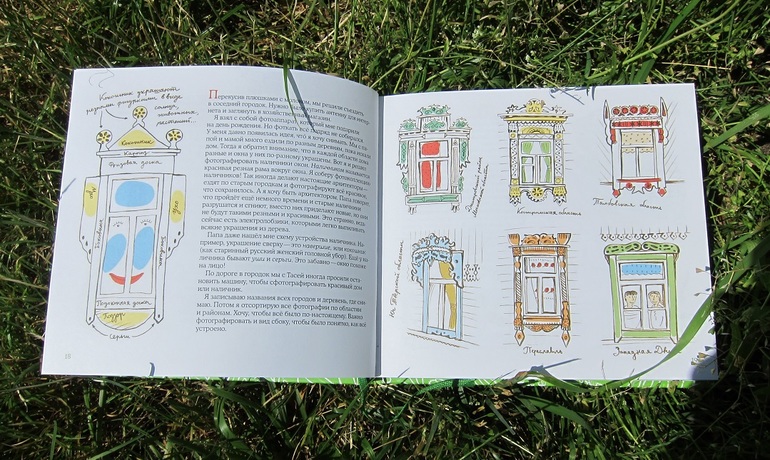 Кокошник украшают
резными фигурками в виде
солнца,
животных,
растений.
Кокошник
Карниз
Фризовая доска
ухо
ухо
Подоконная доска
Подзор
Серьги
Перекусив плюшками с молоком, мы решили съездить
в соседний городок. Нужно было купить антенну для интер-
нета и заглянуть в хозяйственный магазин.
Я взял с собой фотоаппарат, который мне подарили
на день рождения. Но фоткать всё подряд не собирался.
У меня давно появилась идея, что я хочу снимать. Мы с па-
пой и мамой много ездили по разным деревням, пока искали
дом. Тогда я обратил внимание, что в каждой области дома
разные и окна у них по-разному украшены. Вот я и решил
фотографировать наличники окон. Наличником называется
красивая резная рама вокруг окна. Я соберу фотоколлекцию
наличников! Так иногда делают настоящие архитекторы —
ездят по старым городкам и фотографируют всё красивое,
что сохранилось. А я хочу быть архитектором. Папа говорит,
что пройдёт ещё немного времени и старые наличники
разрушатся и сгниют, вместо них приделают новые, но они
не будут такими резными и красивыми. Это странно, есть же
сейчас электролобзики, которыми легко выпиливать
всякие украшения из дерева.
Папа даже нашёл мне схему устройства наличника. На-
пример, украшение сверху — это кокошник, или конёк
(как старинный русский женский головной убор). Ещё у на-
личника бывают уши и серьги. Это забавно — окно похоже
на лицо!
По дороге в городок мы с Тасей иногда просили оста-
новить машину, чтобы сфотографировать красивый дом
или наличник.
Я записываю названия всех городов и деревень, где сни-
маю. Потом я отсортирую все фотографии по областям
и районам. Хочу, чтобы всё было по-настоящему. Важно
фотографировать и вид сбоку, чтобы было понятно, как всё
устроено.
18
Московская область
Костромская область
Псковская область
Тверская область
Переславль
Западная Двина